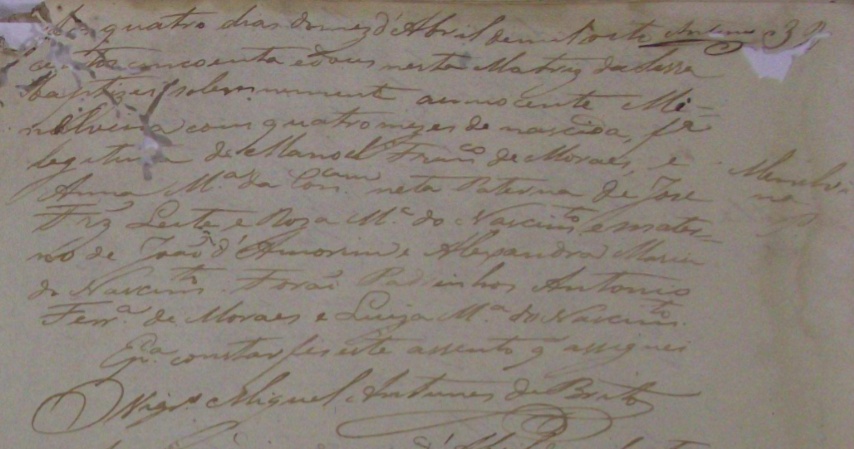 Aos quatro dias do mez d'Abril de mil oito Antunes 3
centos cincoenta e dous nesta Matriz da Serra
baptisei solemnemente a innocente Mi-
nelvina com quatro mezes de nascida, fª
legitima de Manoel Franco de Moraes, e
Anna Mª da Concam neta Paterna de Jose
Frz Leite e Roza Mª do Nascimto, e mater-
no de João d'Amorim e Alexandra Maria
do Nascimto Forão Padrinhos Antonio
Ferrª de Moraes e Luiza Mª do Nascimto.
Epª constar fis este assento q assignei
Vigro Miguel Antunes de Brito
Minelvi
na